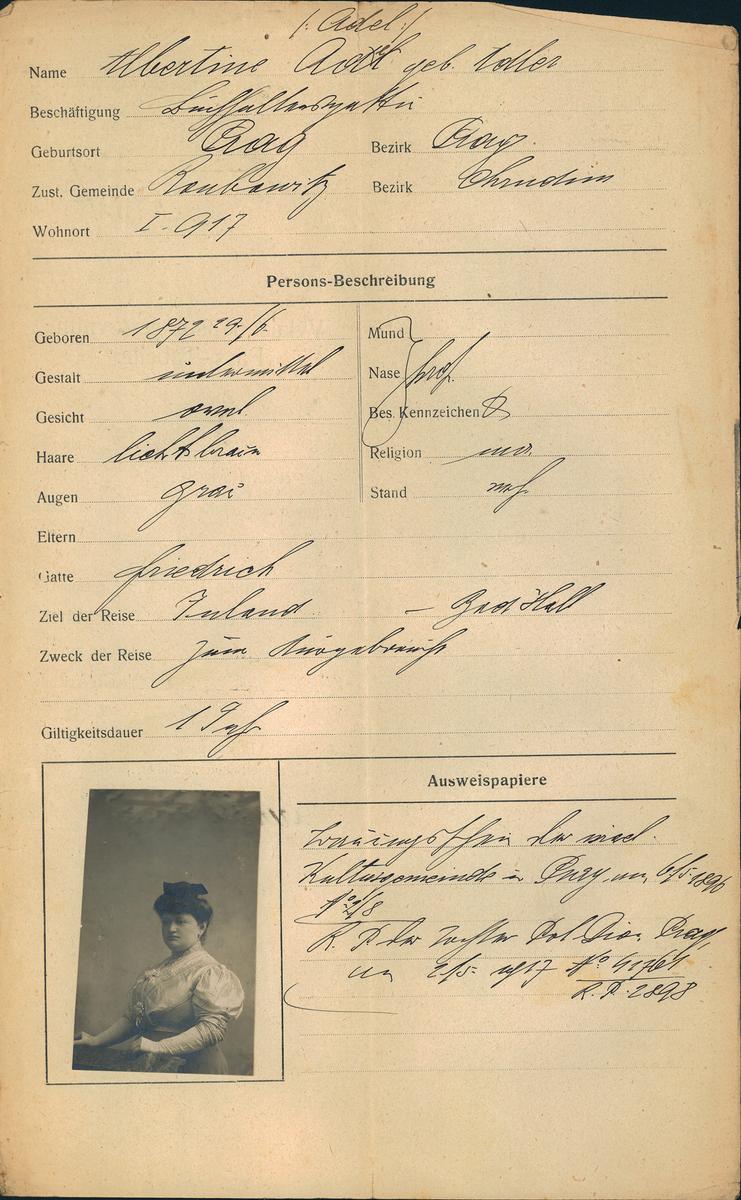 /: Adel :/
Name Albertine Adl geb. Adler
Beschäftigung Buchhaltersgattin
Geburtsort Prag Bezirk Prag
Zust. Gemeinde Roubowitz Bezirk Chrudim
Wohnort I-917
Persons-Beschreibung
Geboren 1872 29/6. Mund
Gestalt untermittel Nase prop.
Gesicht oval Bes. Kennzeichen
Haare lichtbraun Religion mos.
Augen grau Stand verh.
Eltern
Gatte Friedrich
Ziel der Reise Inland. – Bad Hall
Zweck der Reise zum Kurgebrauch
Giltigkeitsdauer 1 Jahr
Ausweispapiere
Trauungsschein der israel.
Kultusgemeinde in Prag vom 6/5. 1896
R. P. der Tochter Pol. Dion. Prag,
2/5. 1917 No.
R. P. 2898